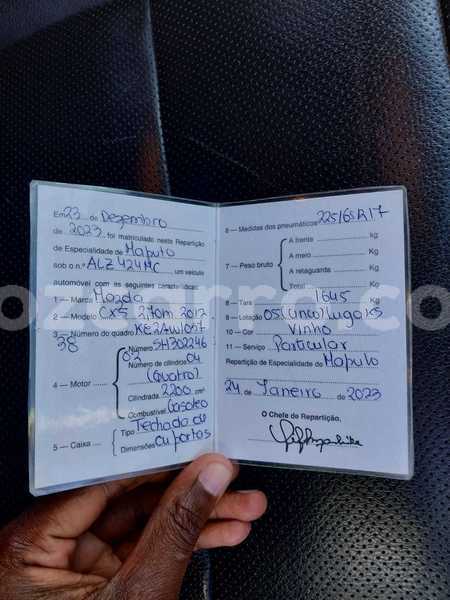 Em 23 de Dezembro
de 2023 foi matriculado nesta Repartição
de Especialidade de Maputo
sob o n.º ALZ 424 MC um veículo
automóvel com as seguintes características:
1 — Marca Mazda
2 — Modelo Cx5 2,Tom 2012
3 — Número do quadro KE2AW1057
38
4 — Motor
Número SH302246
02
Número de cilindros 04
(Quatro)
Cilindrada 2200 cm³
Combustível Gasoleo
5 — Caixa
Tipo Fechada de
Dimensões Cu portas
6 — Medidas dos pneumáticos 225/65R17
7 — Peso bruto
A frente kg
A meio Kg
A retaguarda Kg
Total Kg
8 — Tara 1645 Kg
9 — Lotação 05 (Cinco) lugares
10 — Cor Vinho
11 — Serviço Particular
Repartição de Especialidade de Maputo
24 de Janeiro de 2023
O Chefe de Repartição,